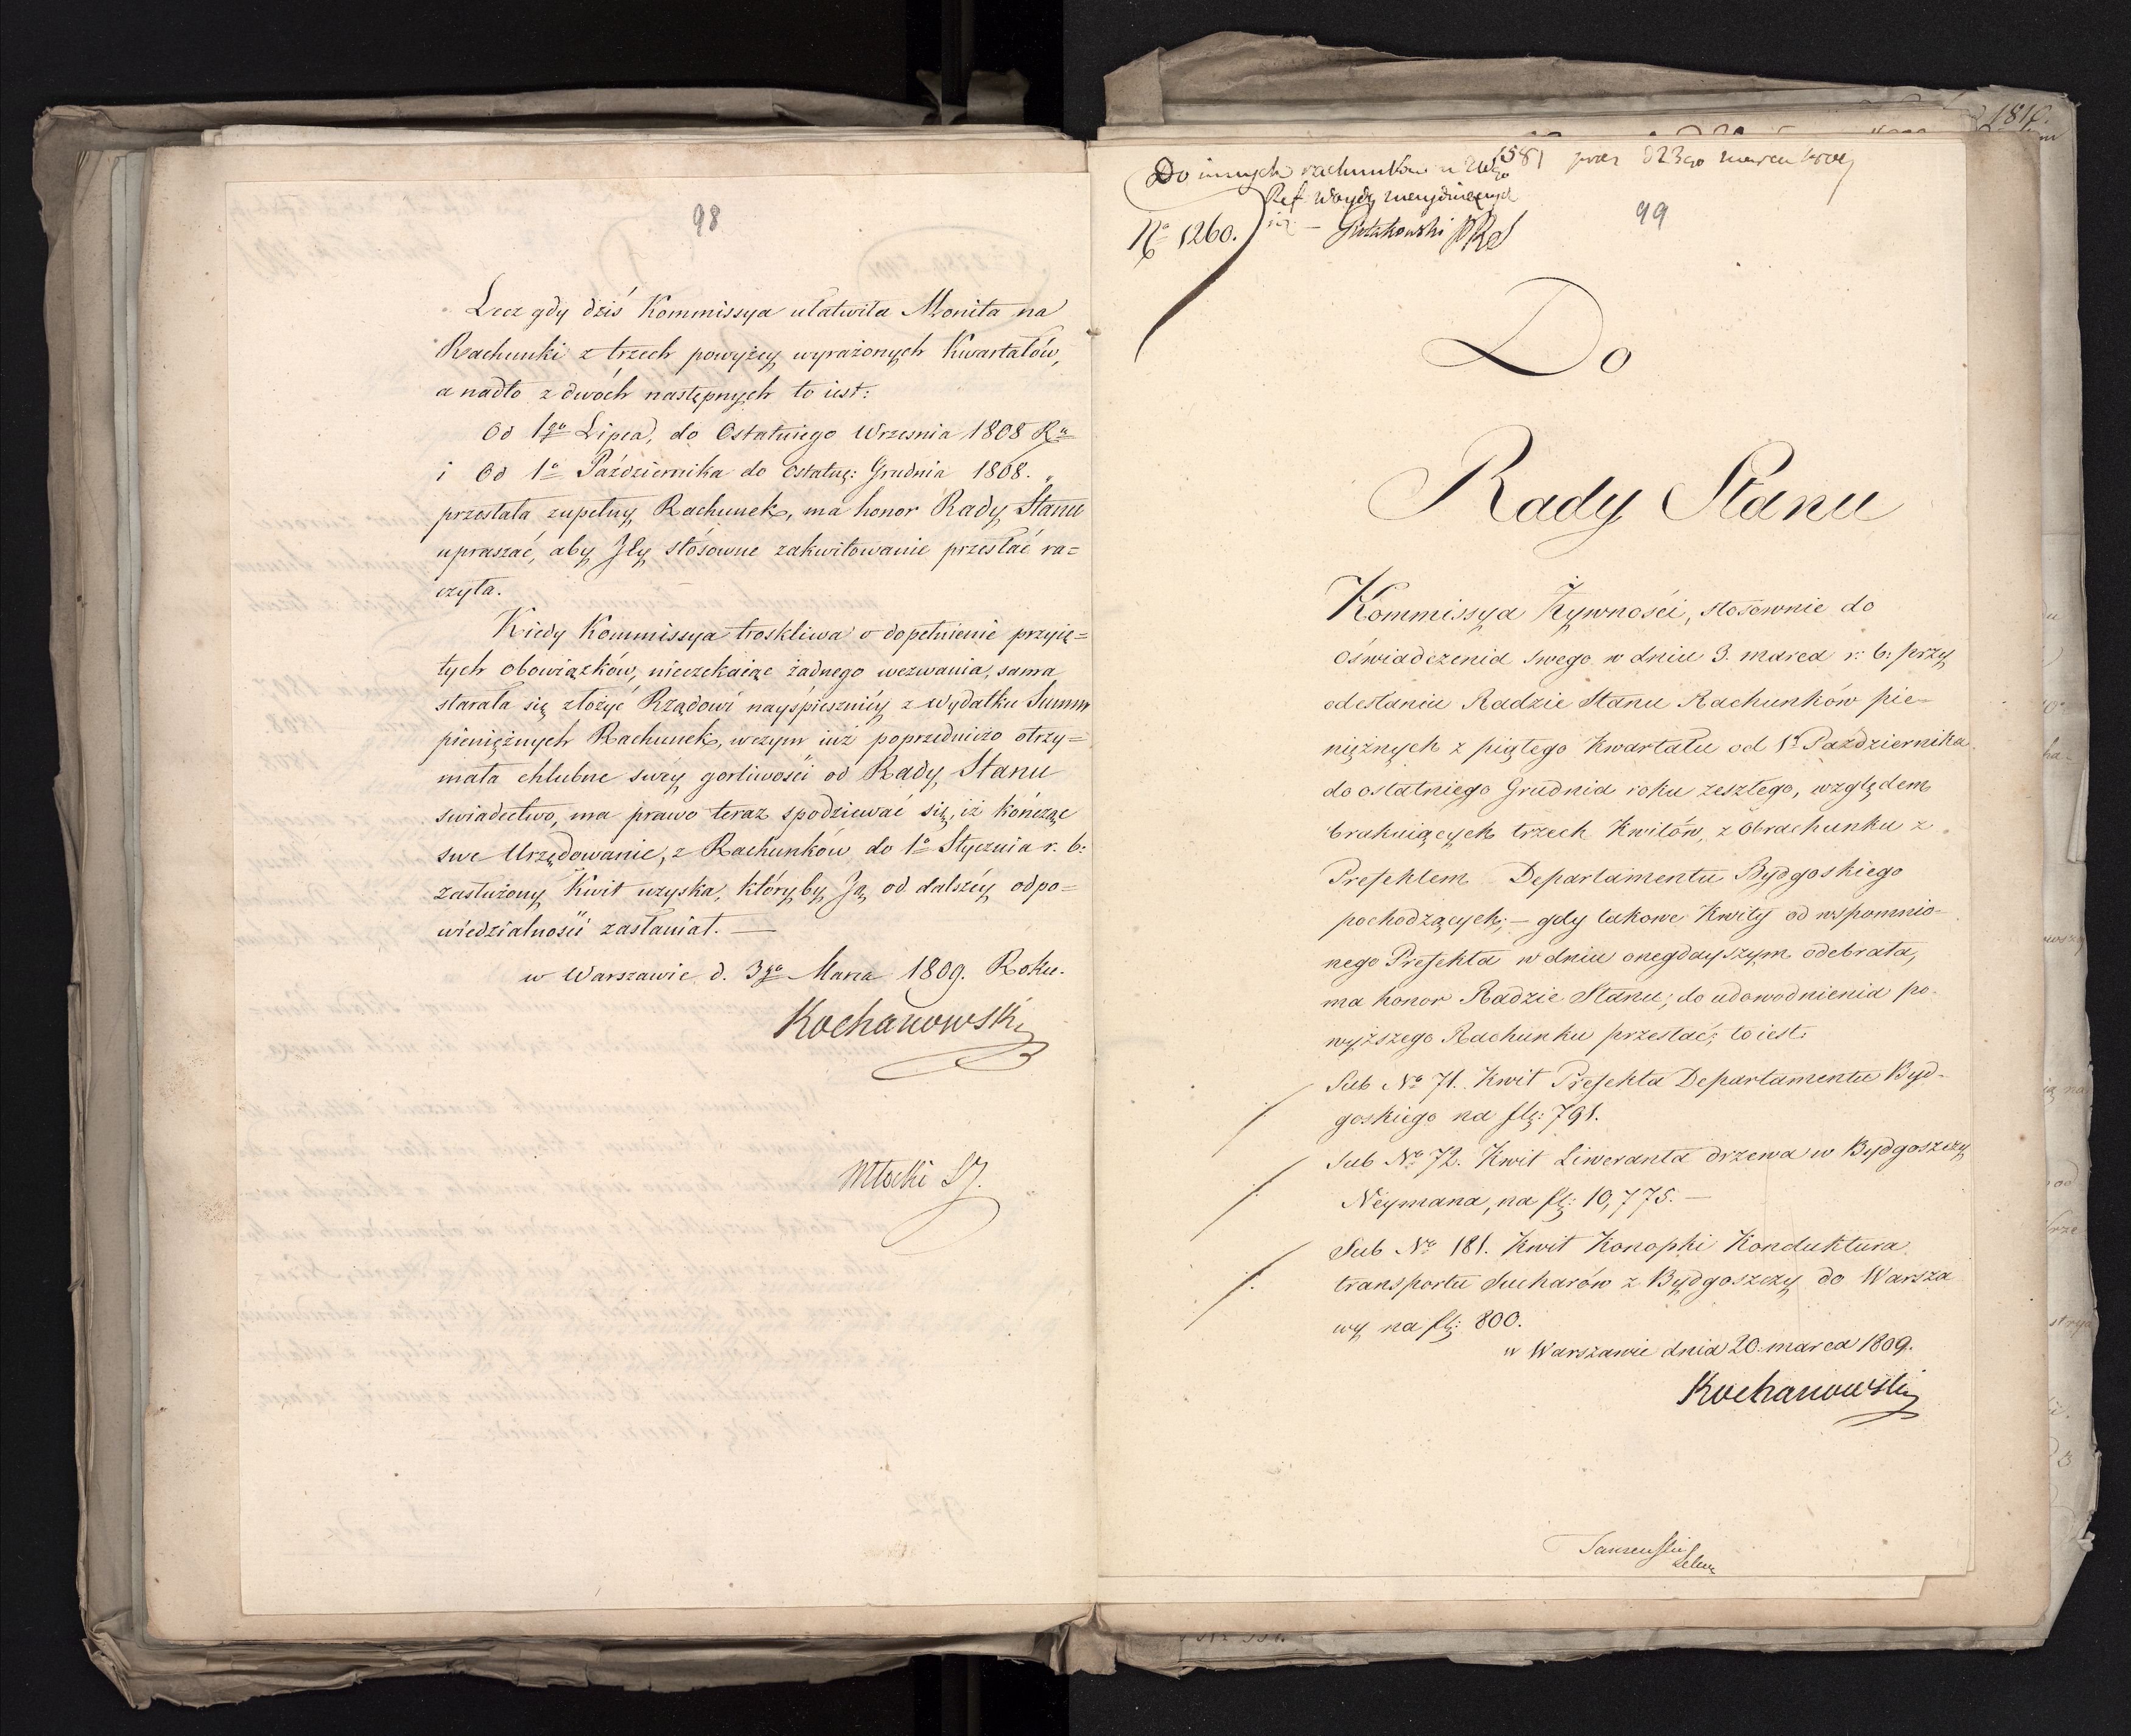 98
Lecz gdy dziś Kommissya ułatwiła Monita na
Rachunki z trzech powyżey wyrażonych Kwartałów,
a nadto z dwóch następnych to iest:
Od 1go Lipca, do Ostatniego Wrzesnia 1808 Ru
i Od 1o Października do Ostatnę: Grudnia 1808. "
przestała zupełny Rachunek, ma honor Rady Stanu
upraszać, aby Jey stósowne zakwitowanie przesłać ra=
czyła.
Kiedy Kommissya troskliwa o dopełnienie przyię=
tych obowiązków, nieczekaiąc żadnego wezwania, sama
starała się złożyć Rządowi nayśpieszniéy z wydatku Summ
pieniężnych Rachunek, wczym iuż poprzedniczo otrzy=
mała chlubne swéy gorliwości od Rady Stanu
swiadectwo, ma prawo teraz spodziewać się, iż kończąc
swe Urzędowanie, z Rachunków do 1o Stycznia r. b:
zasłużony Kwit uzyska, któryby Ją od dalszéy odpo=
wiedzialności zasłaniał. —
w Warszawie d. 3go Marca 1809. Roku.
Kochanowski
Młocki SJ.
Do innych rachunków u
1581 prez d 23go marca 1809
Ref. Woydy
No 1260.
99
Do
Rady Stanu
Kommissya Żywności, stosownie do
óświadczenia swego w dniu 3. marca r: b: przy
odesłaniu Radzie Stanu Rachunków pie-
niężnych z piątego Kwartału od 1o Października
do ostatniego Grudnia roku zeszłego, względem
brakuiących trzech Kwitów, z Obrachunku z
Prefektem Departamentu Bydgoskiego
pochodzących; — gdy takowe Kwity od wspomnio-
nego Prefekta w dniu onegdayszym odebrała,
ma honor Radzie Stanu; do udowodnienia po-
wyższego Rachunku przesłać; to iest:
Sub No 71. Kwit Prefekta Departamentu Byd-
goskiego na flę: 791.
Sub No 72. Kwit Liweranta drzewa w Bydgoszczy
Neymana, na flę: 10,775. —
Sub No 181. Kwit Konopki Konduktura
transportu Sucharów z Bydgoszczy do Warsza
wy na flę: 800.
w Warszawie dnia 20. marca 1809.
Kochanowski